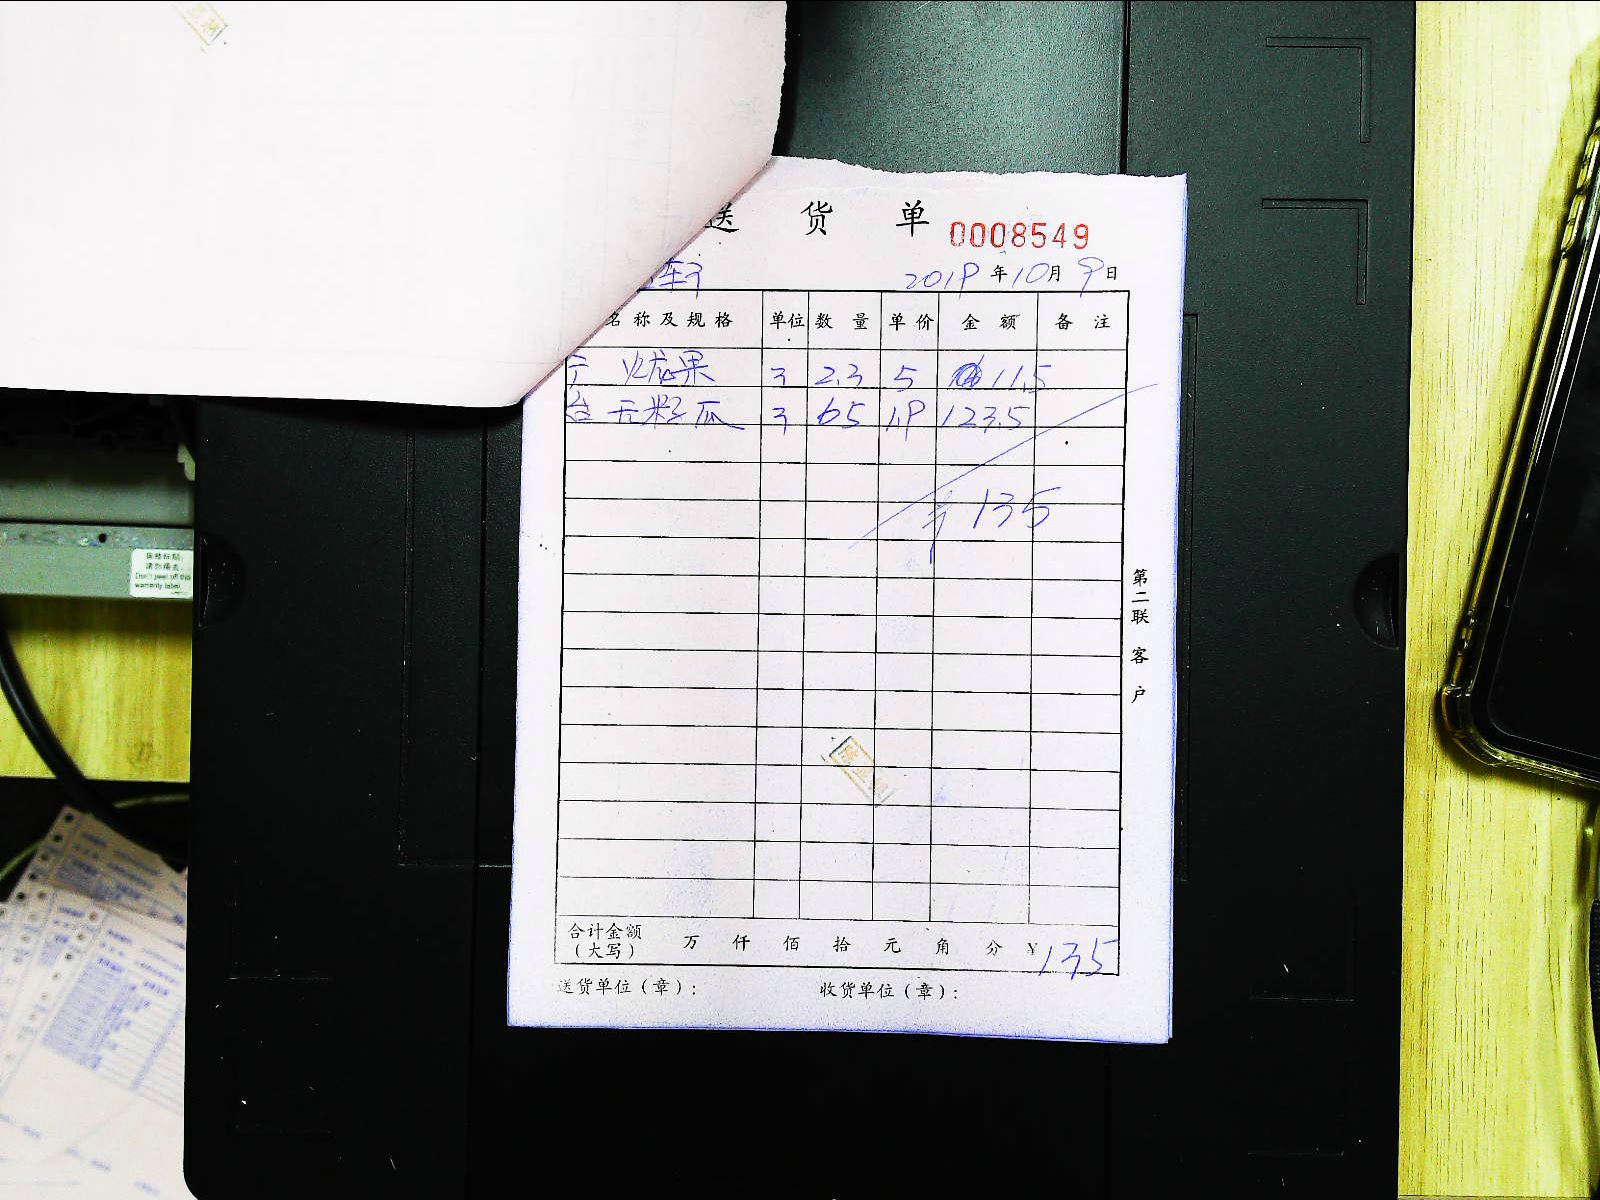 送 货 单 0008549
2019 年 10 月 9 日
名称及规格 单位 数 量 单 价 金 额 备 注
火龙果 3 2.3 5 11.5
无籽瓜 3 65 1.9 123.5
¥135
第二联 客户
合计金额（大写） 万 仟 佰 拾 元 角 分 ¥135
送货单位（章）： 收货单位（章）：
请勿撕去.
Don't peel off this
warranty label